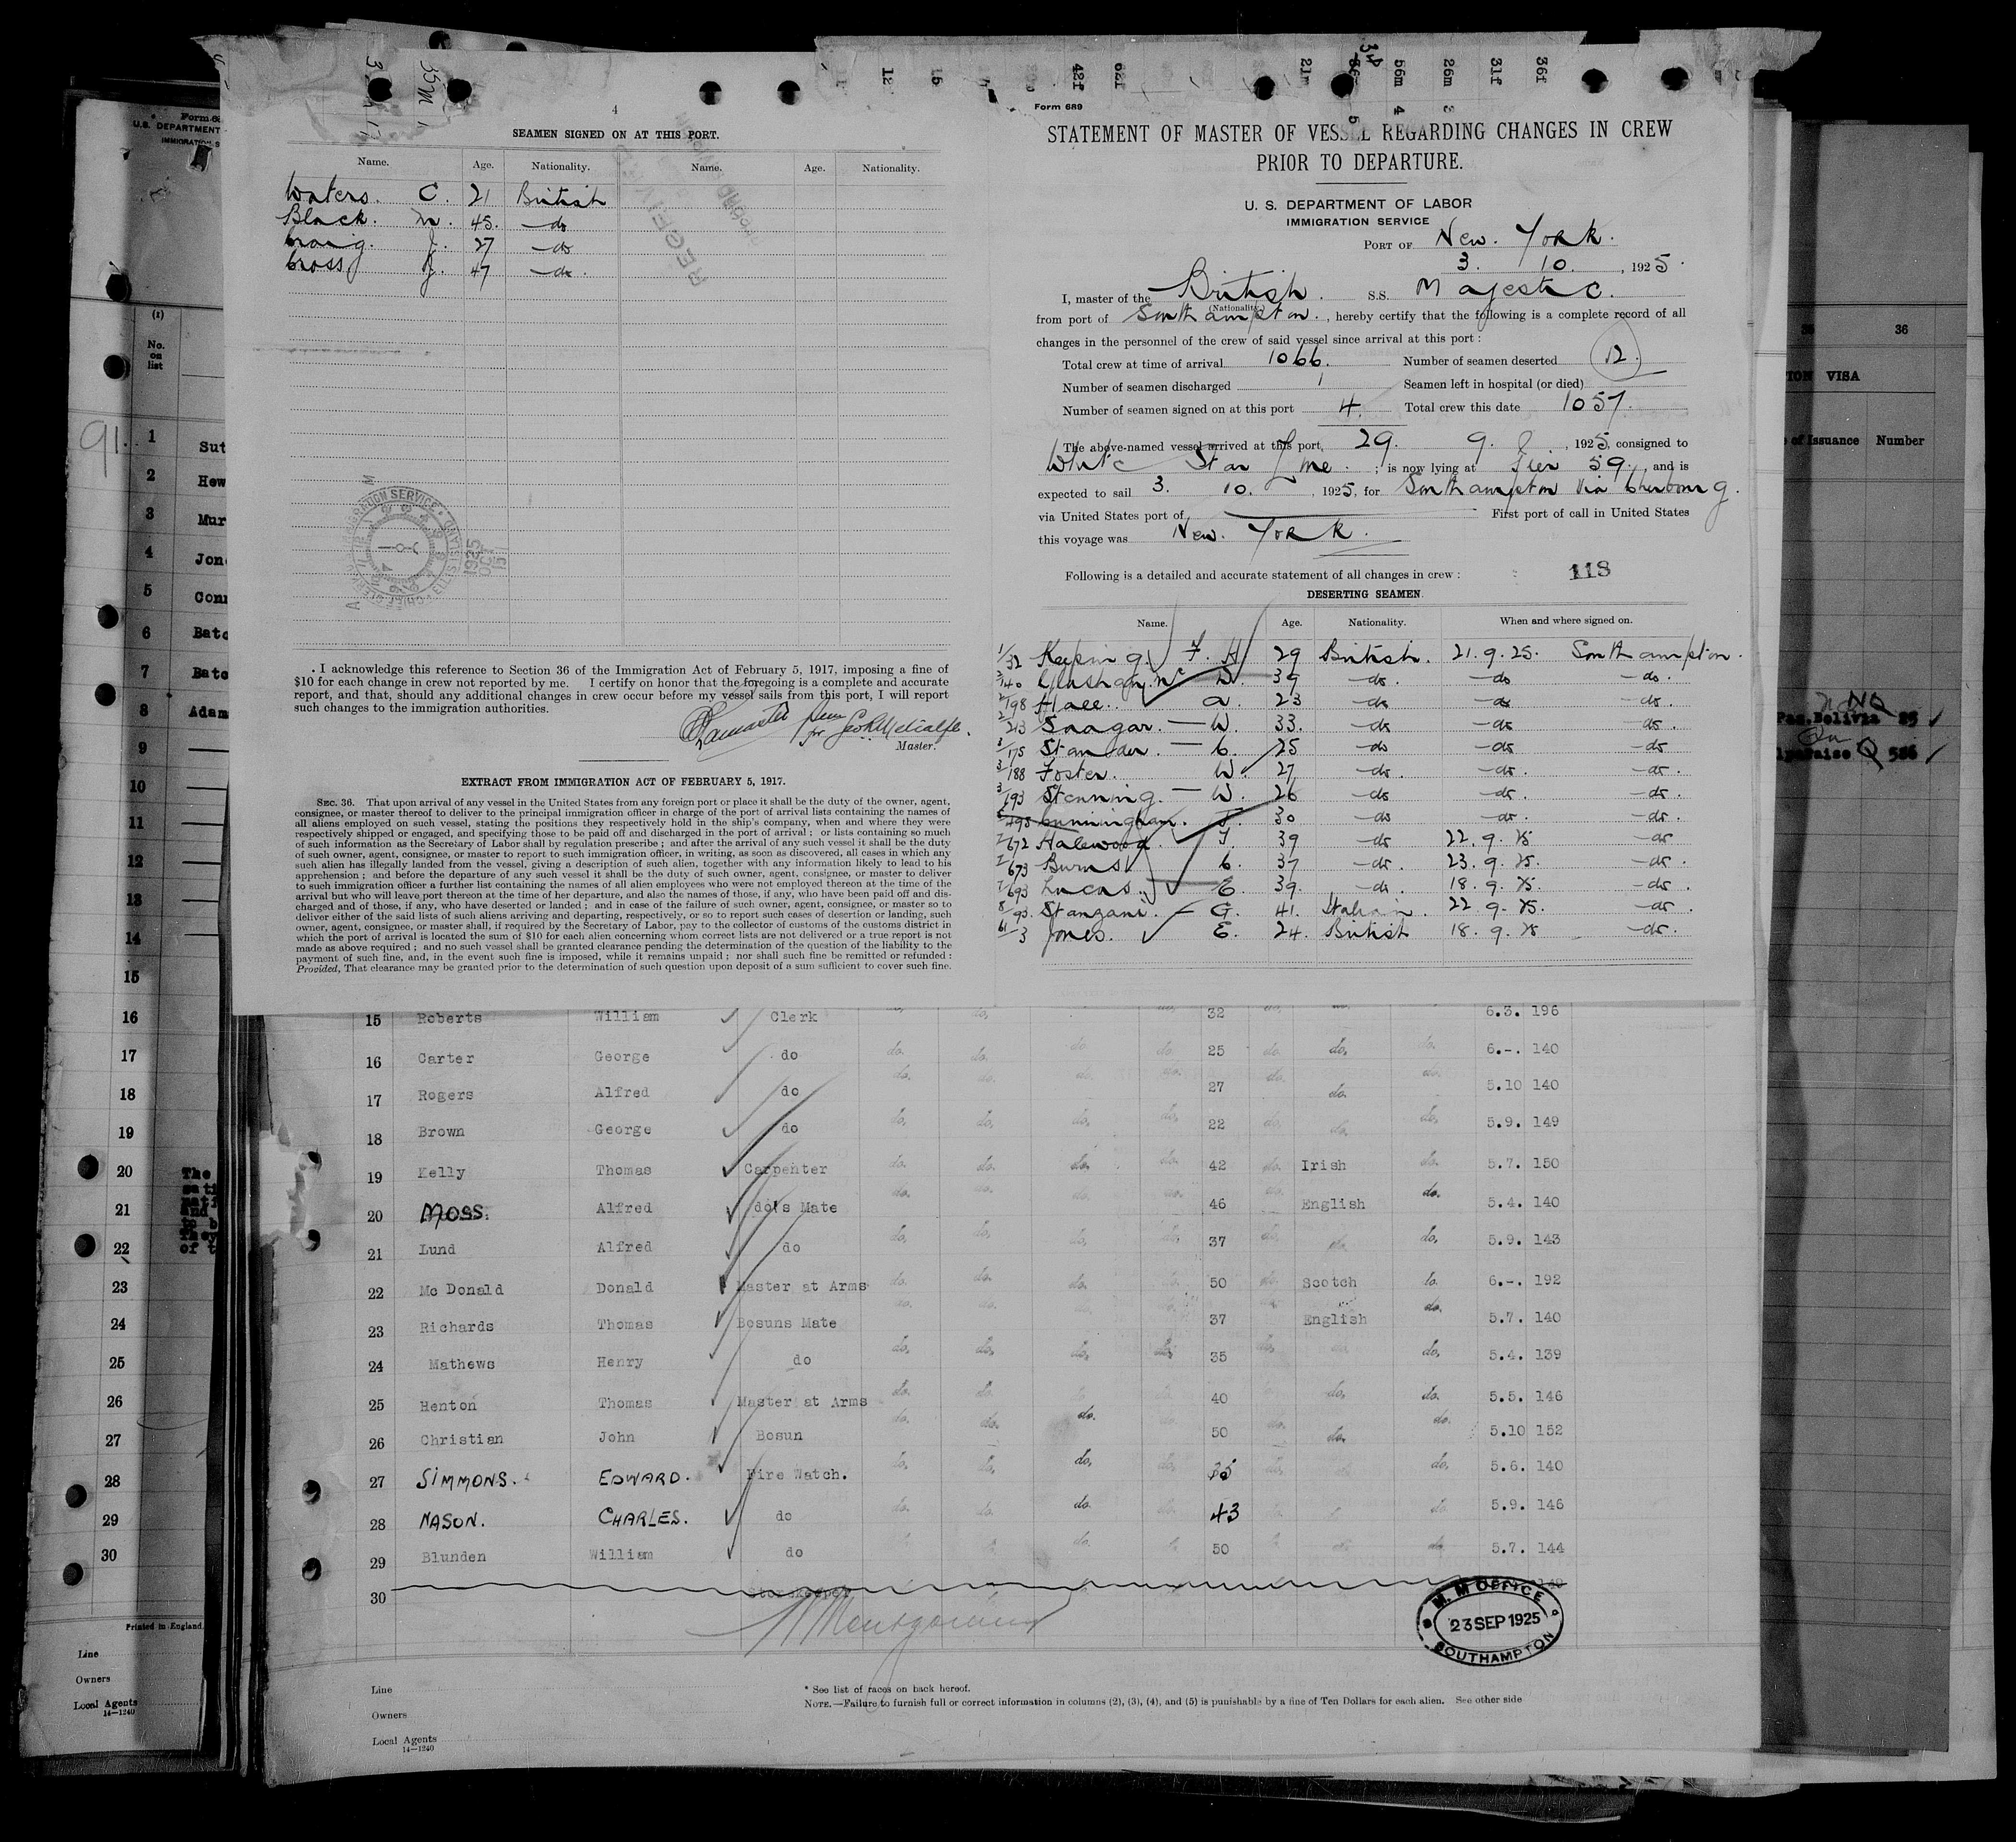 4
SEAMEN SIGNED ON AT THIS PORT.
Name. Age. Nationality. Name. Age. Nationality.
Waters. C. 21 British
Black. M. 45. —do
Craig. J. 27 —do
Cross J. 47 —do.
RECEIVED
CHIEF CLERK
IMMIGRATION SERVICE
ELLIS ISLAND
1925 OCT 15
. I acknowledge this reference to Section 36 of the Immigration Act of February 5, 1917, imposing a fine of
$10 for each change in crew not reported by me. I certify on honor that the foregoing is a complete and accurate
report, and that, should any additional changes in crew occur before my vessel sails from this port, I will report
such changes to the immigration authorities.
for Geo R Metcalfe.
Master.
EXTRACT FROM IMMIGRATION ACT OF FEBRUARY 5, 1917.
SEC. 36. That upon arrival of any vessel in the United States from any foreign port or place it shall be the duty of the owner, agent,
consignee, or master thereof to deliver to the principal immigration officer in charge of the port of arrival lists containing the names of
all aliens employed on such vessel, stating the positions they respectively hold in the ship's company, when and where they were
respectively shipped or engaged, and specifying those to be paid off and discharged in the port of arrival ; or lists containing so much
of such information as the Secretary of Labor shall by regulation prescribe ; and after the arrival of any such vessel it shall be the duty
of such owner, agent, consignee, or master to report to such immigration officer, in writing, as soon as discovered, all cases in which any
such alien has illegally landed from the vessel, giving a description of such alien, together with any information likely to lead to his
apprehension ; and before the departure of any such vessel it shall be the duty of such owner, agent, consignee, or master to deliver
to such immigration officer a further list containing the names of all alien employees who were not employed thereon at the time of the
arrival but who will leave port thereon at the time of her departure, and also the names of those, if any, who have been paid off and dis-
charged and of those, if any, who have deserted or landed ; and in case of the failure of such owner, agent, consignee, or master so to
deliver either of the said lists of such aliens arriving and departing, respectively, or so to report such cases of desertion or landing, such
owner, agent, consignee, or master, shall, if required by the Secretary of Labor, pay to the collector of customs of the customs district in
which the port of arrival is located the sum of $10 for each alien concerning whom correct lists are not delivered or a true report is not
made as above required ; and no such vessel shall be granted clearance pending the determination of the question of the liability to the
payment of such fine, and, in the event such fine is imposed, while it remains unpaid ; nor shall such fine be remitted or refunded :
Provided, That clearance may be granted prior to the determination of such question upon deposit of a sum sufficient to cover such fine.
Form 689
STATEMENT OF MASTER OF VESSEL REGARDING CHANGES IN CREW
PRIOR TO DEPARTURE.
U. S. DEPARTMENT OF LABOR
IMMIGRATION SERVICE
PORT OF New. York.
3. 10. , 1925.
I, master of the British. S.S. Majestic.
(Nationality)
from port of Southampton. , hereby certify that the following is a complete record of all
changes in the personnel of the crew of said vessel since arrival at this port :
Total crew at time of arrival 1066. Number of seamen deserted 12.
Number of seamen discharged 1 Seamen left in hospital (or died)
Number of seamen signed on at this port 4. Total crew this date 1057.
The above-named vessel arrived at this port, 29. 9. , 1925, consigned to
White Star Line. ; is now lying at Pier 59. , and is
expected to sail 3. 10. , 1925, for Southampton via Cherbourg.
via United States port of First port of call in United States
this voyage was New. York.
Following is a detailed and accurate statement of all changes in crew : 118
DESERTING SEAMEN.
Name. Age. Nationality. When and where signed on.
1/32 Keeping. F. H 29 British. 21.9.25. Southampton.
2/40 W. 39 —do. —do —do.
2/198 Hall. A. 23 —do —do —do.
2/213 Snagar. — W. 33. —do —do —do.
3/175 Stander. — C. 25 —do —do —do
3/188 Foster. W. 27 —do. —do. —do.
3/193 Stenning. — W. 26 —do —do. —do.
5/498 Cunningham. J. 30 —do —do. —do.
7/672 Halewood. J. 39 —do 22.9.25 —do
7/673 Burns. C. 37 —do. 23.9.25. —do.
7/693 Lucas. E. 39. —do. 18.9.25. —do.
8/93. Stanzani. — G. 41. Italian. 22.9.25. —do.
61/3 Jones. E. 24. British 18.9.25 —do.
15 Roberts William Clerk 32 6.3. 196
16 Carter George do do. do. do. do. 25 do. do. do. 6.-. 140
17 Rogers Alfred do do. do. do. do. 27 do. do. do. 5.10 140
18 Brown George do do. do. do. do. 22 do. do. do. 5.9. 149
19 Kelly Thomas Carpenter do. do. do. do. 42 do. Irish do. 5.7. 150
20 MOSS. Alfred do's Mate do. do. do. do. 46 do. English do. 5.4. 140
21 Lund Alfred do do. do. do. do. 37 do. do. do. 5.9. 143
22 Mc Donald Donald Master at Arms do. do. do. do. 50 do. Scotch do. 6.-. 192
23 Richards Thomas Bosuns Mate 37 English do. 5.7. 140
24 Mathews Henry do do. do. do. do. 35 do. do. 5.4. 139
25 Henton Thomas Master at Arms do. do. do. 40 do. do. do. 5.5. 146
26 Christian John Bosun do. do. do. do. 50 do. do. do. 5.10 152
27 SIMMONS. EDWARD. Fire Watch. do. do. do. do. 35 do. do. 5.6. 140
28 MASON. CHARLES. do do. do. do. do. 43 do. do. 5.9. 146
29 Blunden William do do. do. 50 do. 5.7. 144
30 Storekeeper
Montgomery
M. M OFFICE
23 SEP 1925
SOUTHAMPTON
Line
Owners
Local Agents
14—1240
* See list of races on back hereof.
NOTE.—Failure to furnish full or correct information in columns (2), (3), (4), and (5) is punishable by a fine of Ten Dollars for each alien. See other side
U.S. DEPARTMENT
(1)
No.
on
list
91.
1 Sut
2 Hew
3 Mur
4 Jon
5 Conn
6 Batc
7 Batc
8 Adam
9
10
11
12
13
14
15
16
17
18
19
20
21
22
23
24
25
26
27
28
29
30
Printed in England.
Line
Owners
Local Agents
14—1240
36
VISA
of Issuance Number
Bolivia 85
586